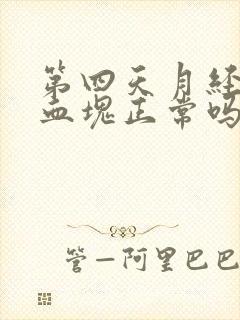 第四天月经
血块正常吗
管—阿里巴巴